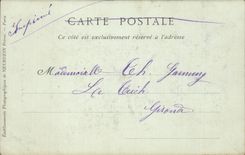 Imprimé
CARTE POSTALE
Ce côté est exclusivement réservé à l'adresse
Mademoiselle Th.
Le
Gironde
Etablissements Photographiques de NEURDEIN Frères - Paris